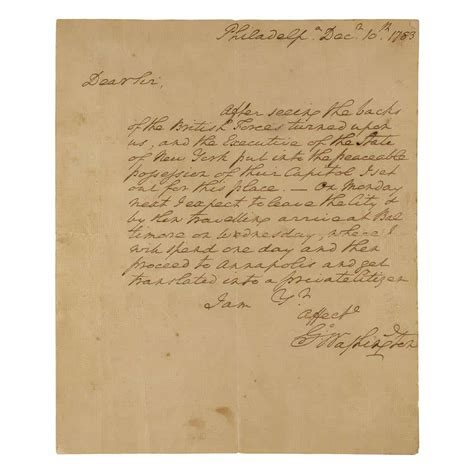 Philadelpa. Decr. 10th. 1783
Dear Sir,
After seeing the backs
of the British Forces turned upon
us, and the Executive of the State
of New York put into the peaceable
possession of their Capitol I set
out for this place. — On Monday
next I expect to leave the City &
by slow travelling arrive at Bal
timore on Wednesday, where I
will spend one day and then
proceed to Annapolis and get
translated into a private Citizen
I am Yr.
Affecte.
Go Washington